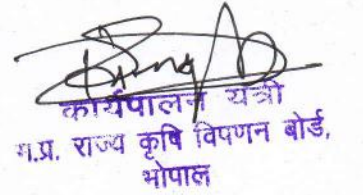 कार्यपालन यंत्री
म.प्र. राज्य कृषि विपणन बोर्ड,
भोपाल